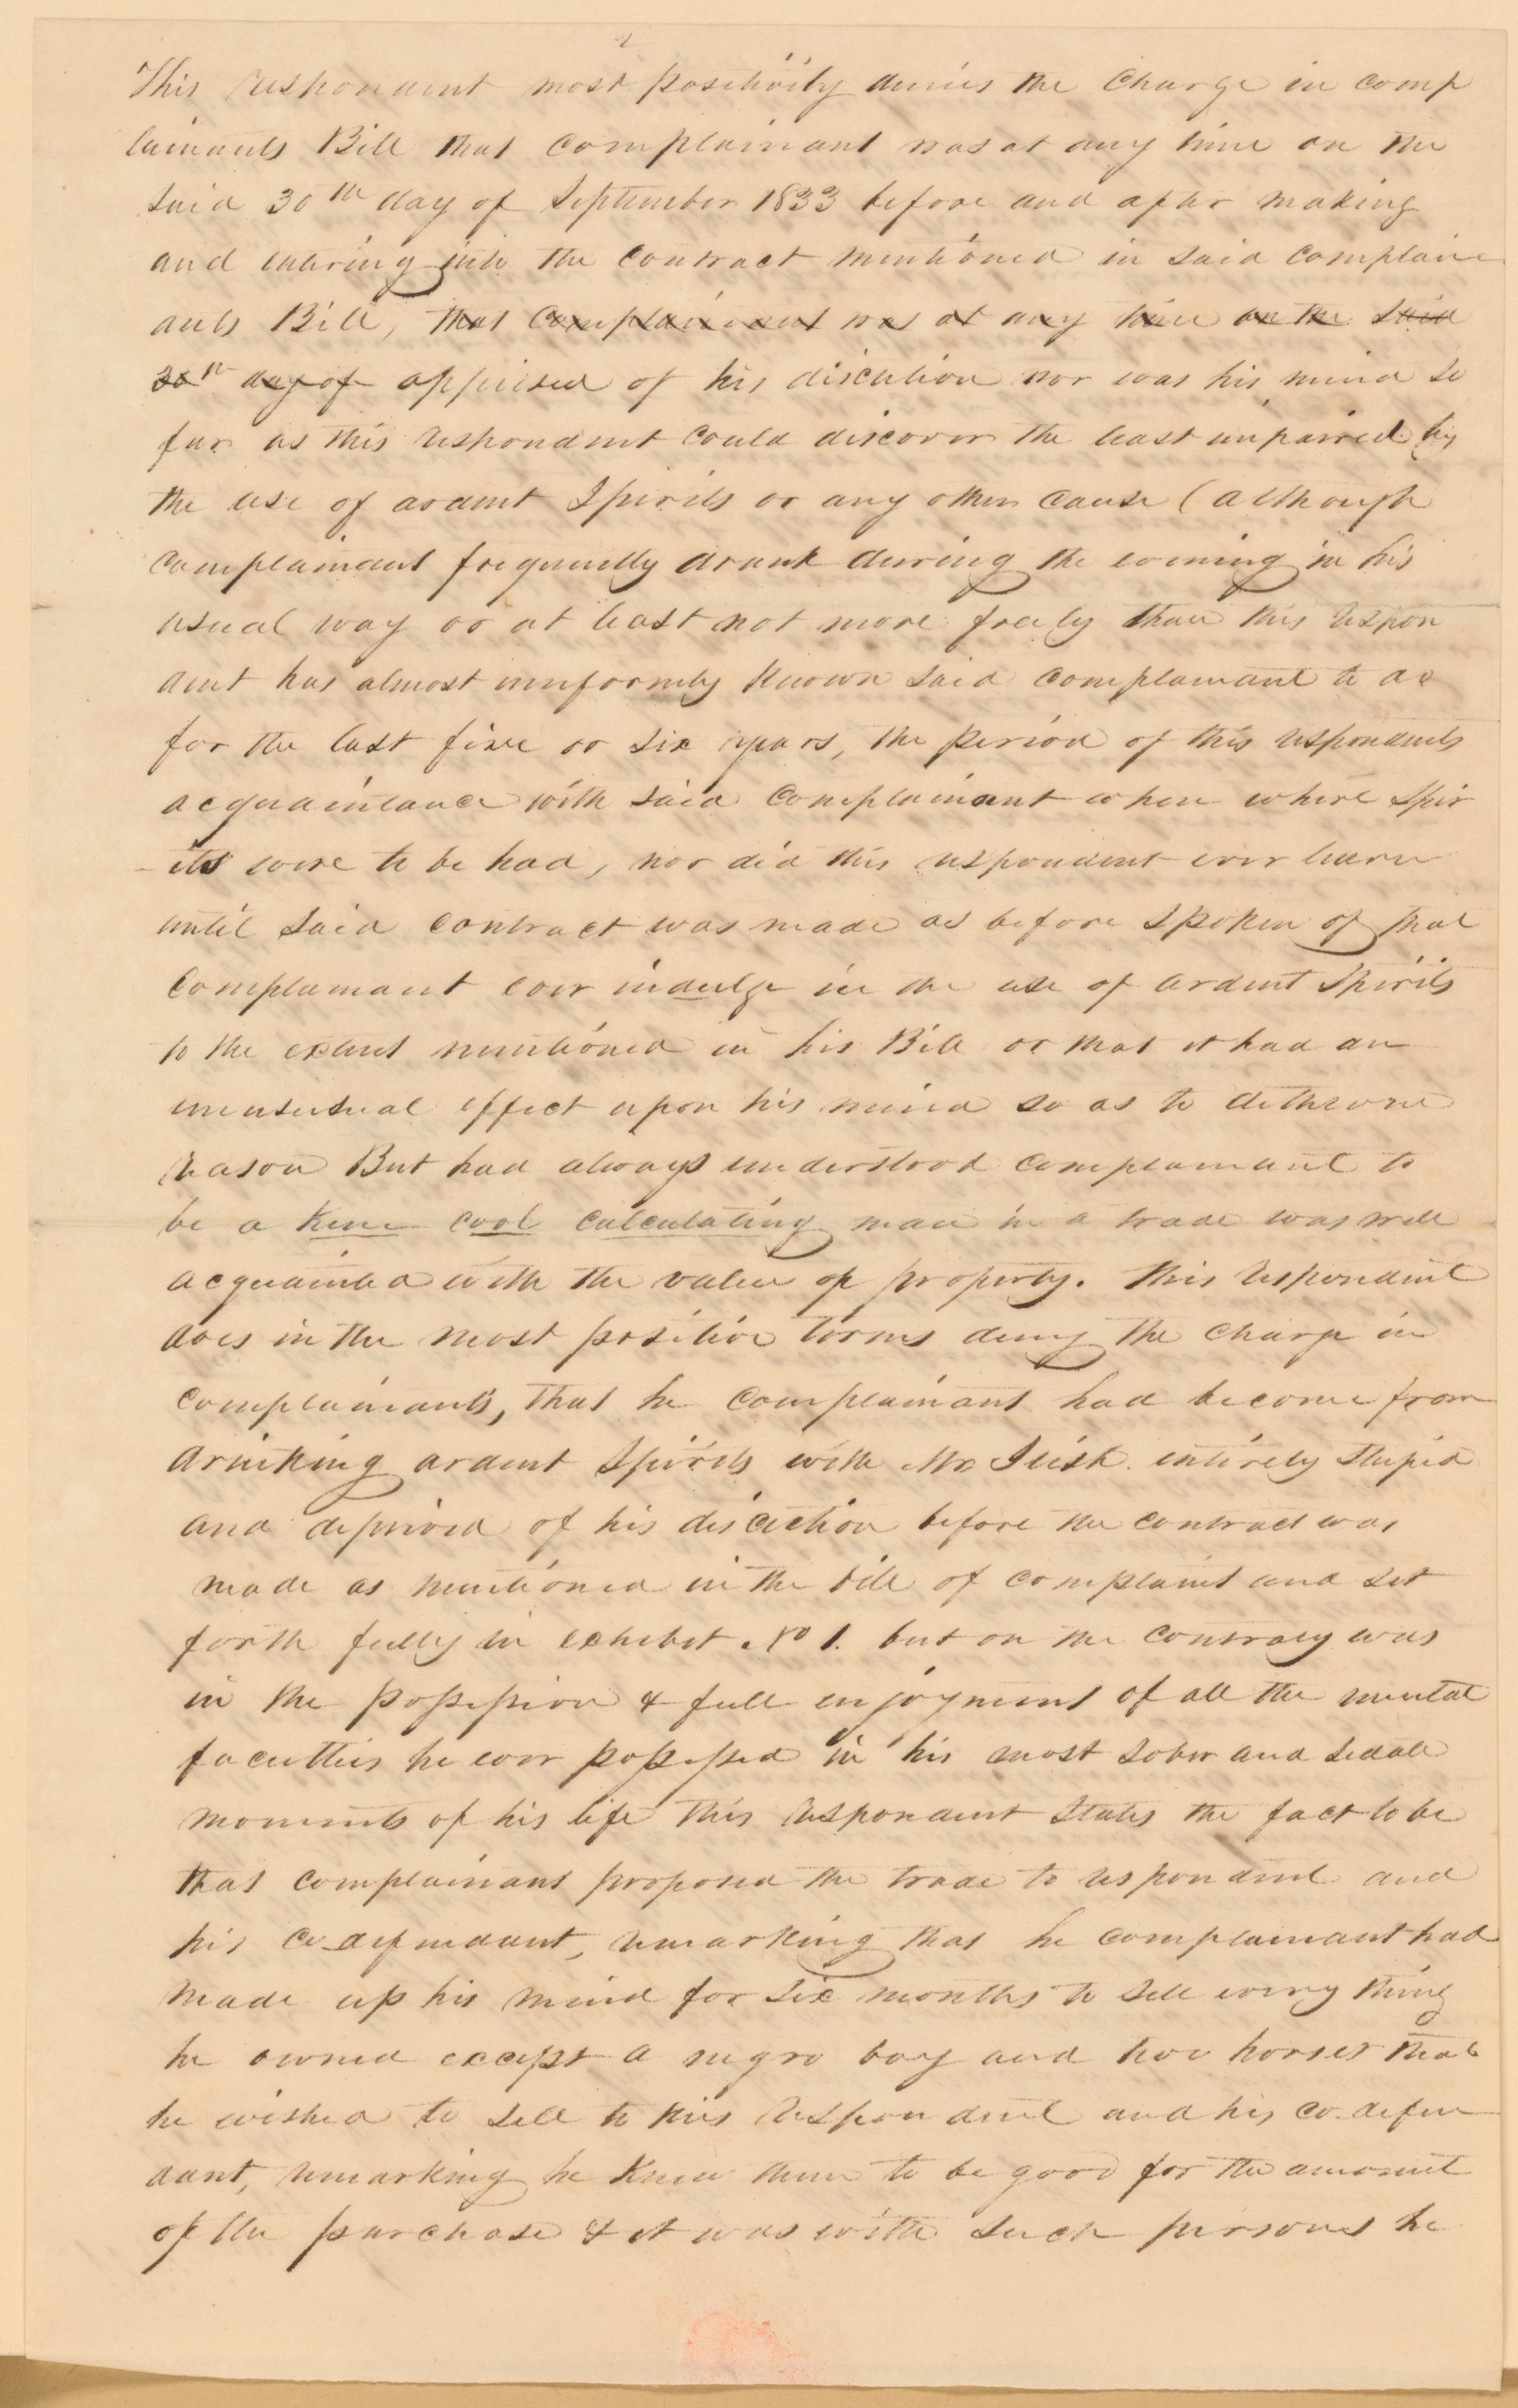 2
This respondent most positively denies the Charge in comp
lainants Bill that Complainant was at any time on the
said 30th day of September 1833 before and after making
and entering into the Contract mentioned in said complain
ants Bill, that Complainant was at any time on the said
30th day of apprised of his discretion nor was his mind so
far as this respondent could discover the least impaired by
the use of ardent Spirits or any other cause (although
complainant frequently drank during the evening in his
usual way or at least not more freely than this respon
dent has almost uniformly known said complainant to do
for the last five or six years, the period of this respondents
acquaintance with said complainant when where spir
its were to be had, nor did this respondent ever learn
until said contract was made as before spoken of that
complainant ever indulge in the use of ardent Spirits
to the extent mentioned in his Bill or that it had an
unusual effect upon his mind so as to dethrone
reason But had always understood complainant to
be a keen cool calculating man in a trade was well
acquainted with the value of property. This respondent
does in the most positive terms deny the charge in
complainants, that he complainant had become from
drinking ardent Spirits with Mr entirely stupid
and deprived of his discretion before the contract was
made as mentioned in the bill of complaint and set
forth fully in exhibit No 1. but on the contrary was
in the possession & full enjoyment of all the mental
faculties he ever possessed in his most sober and sedate
moments of his life This respondent states the fact to be
that complainant proposed the trade to respondent and
his co-defendant, remarking that he complainant had
made up his mind for six months to sell every thing
he owned except a negro boy and two horses that
he wished to sell to this respondent and his co-defen
dant, remarking he knew them to be good for the amount
of the purchase & it was with such persons he